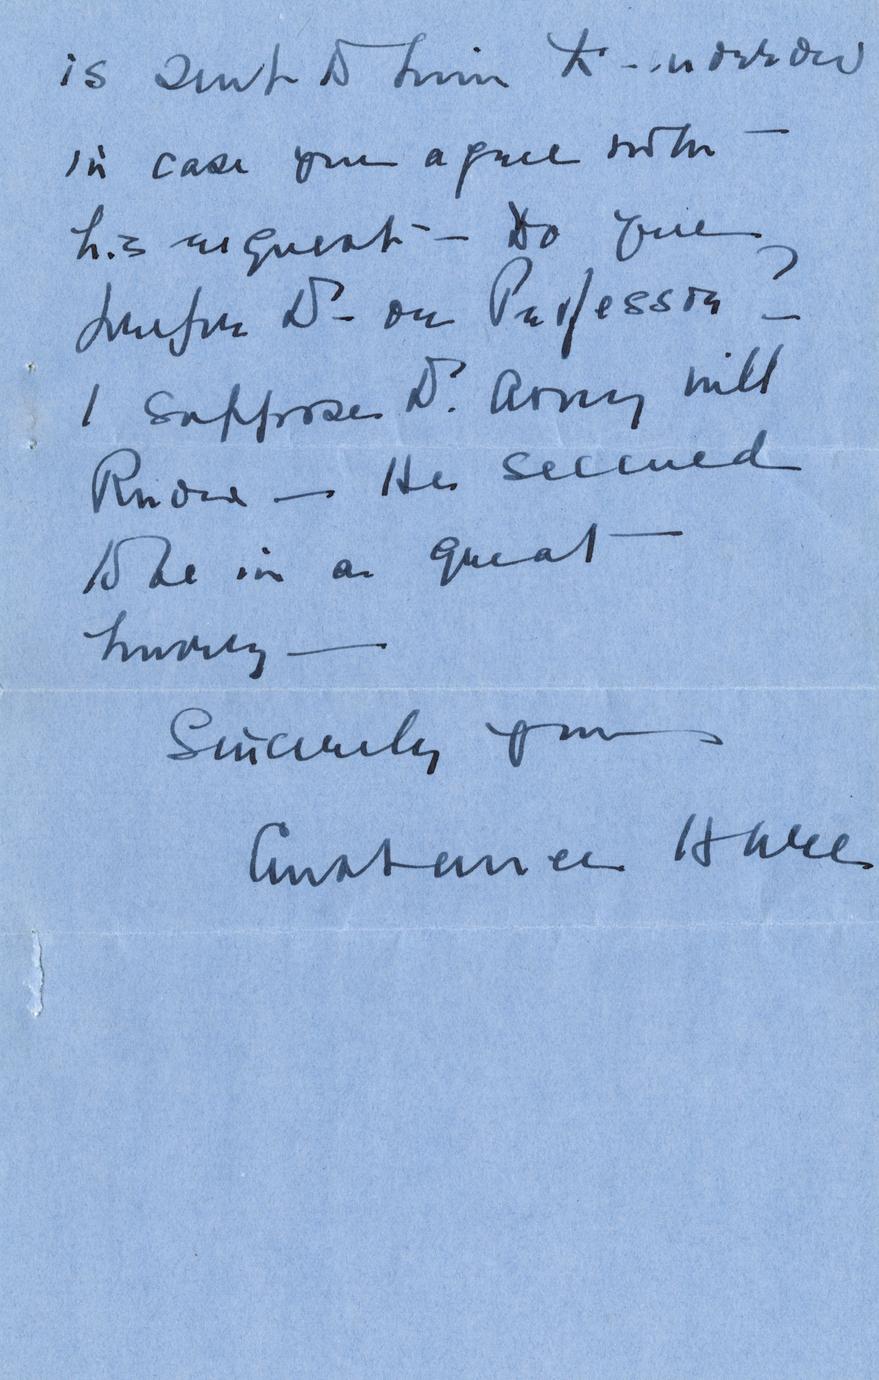 is sent to him to-morrow
in case you agree with
his request — Do you
prefer Dr. or Professor?
I suppose Dr. Avery will
know — He seemed
to be in a great
hurry —
Sincerely yours
Constance